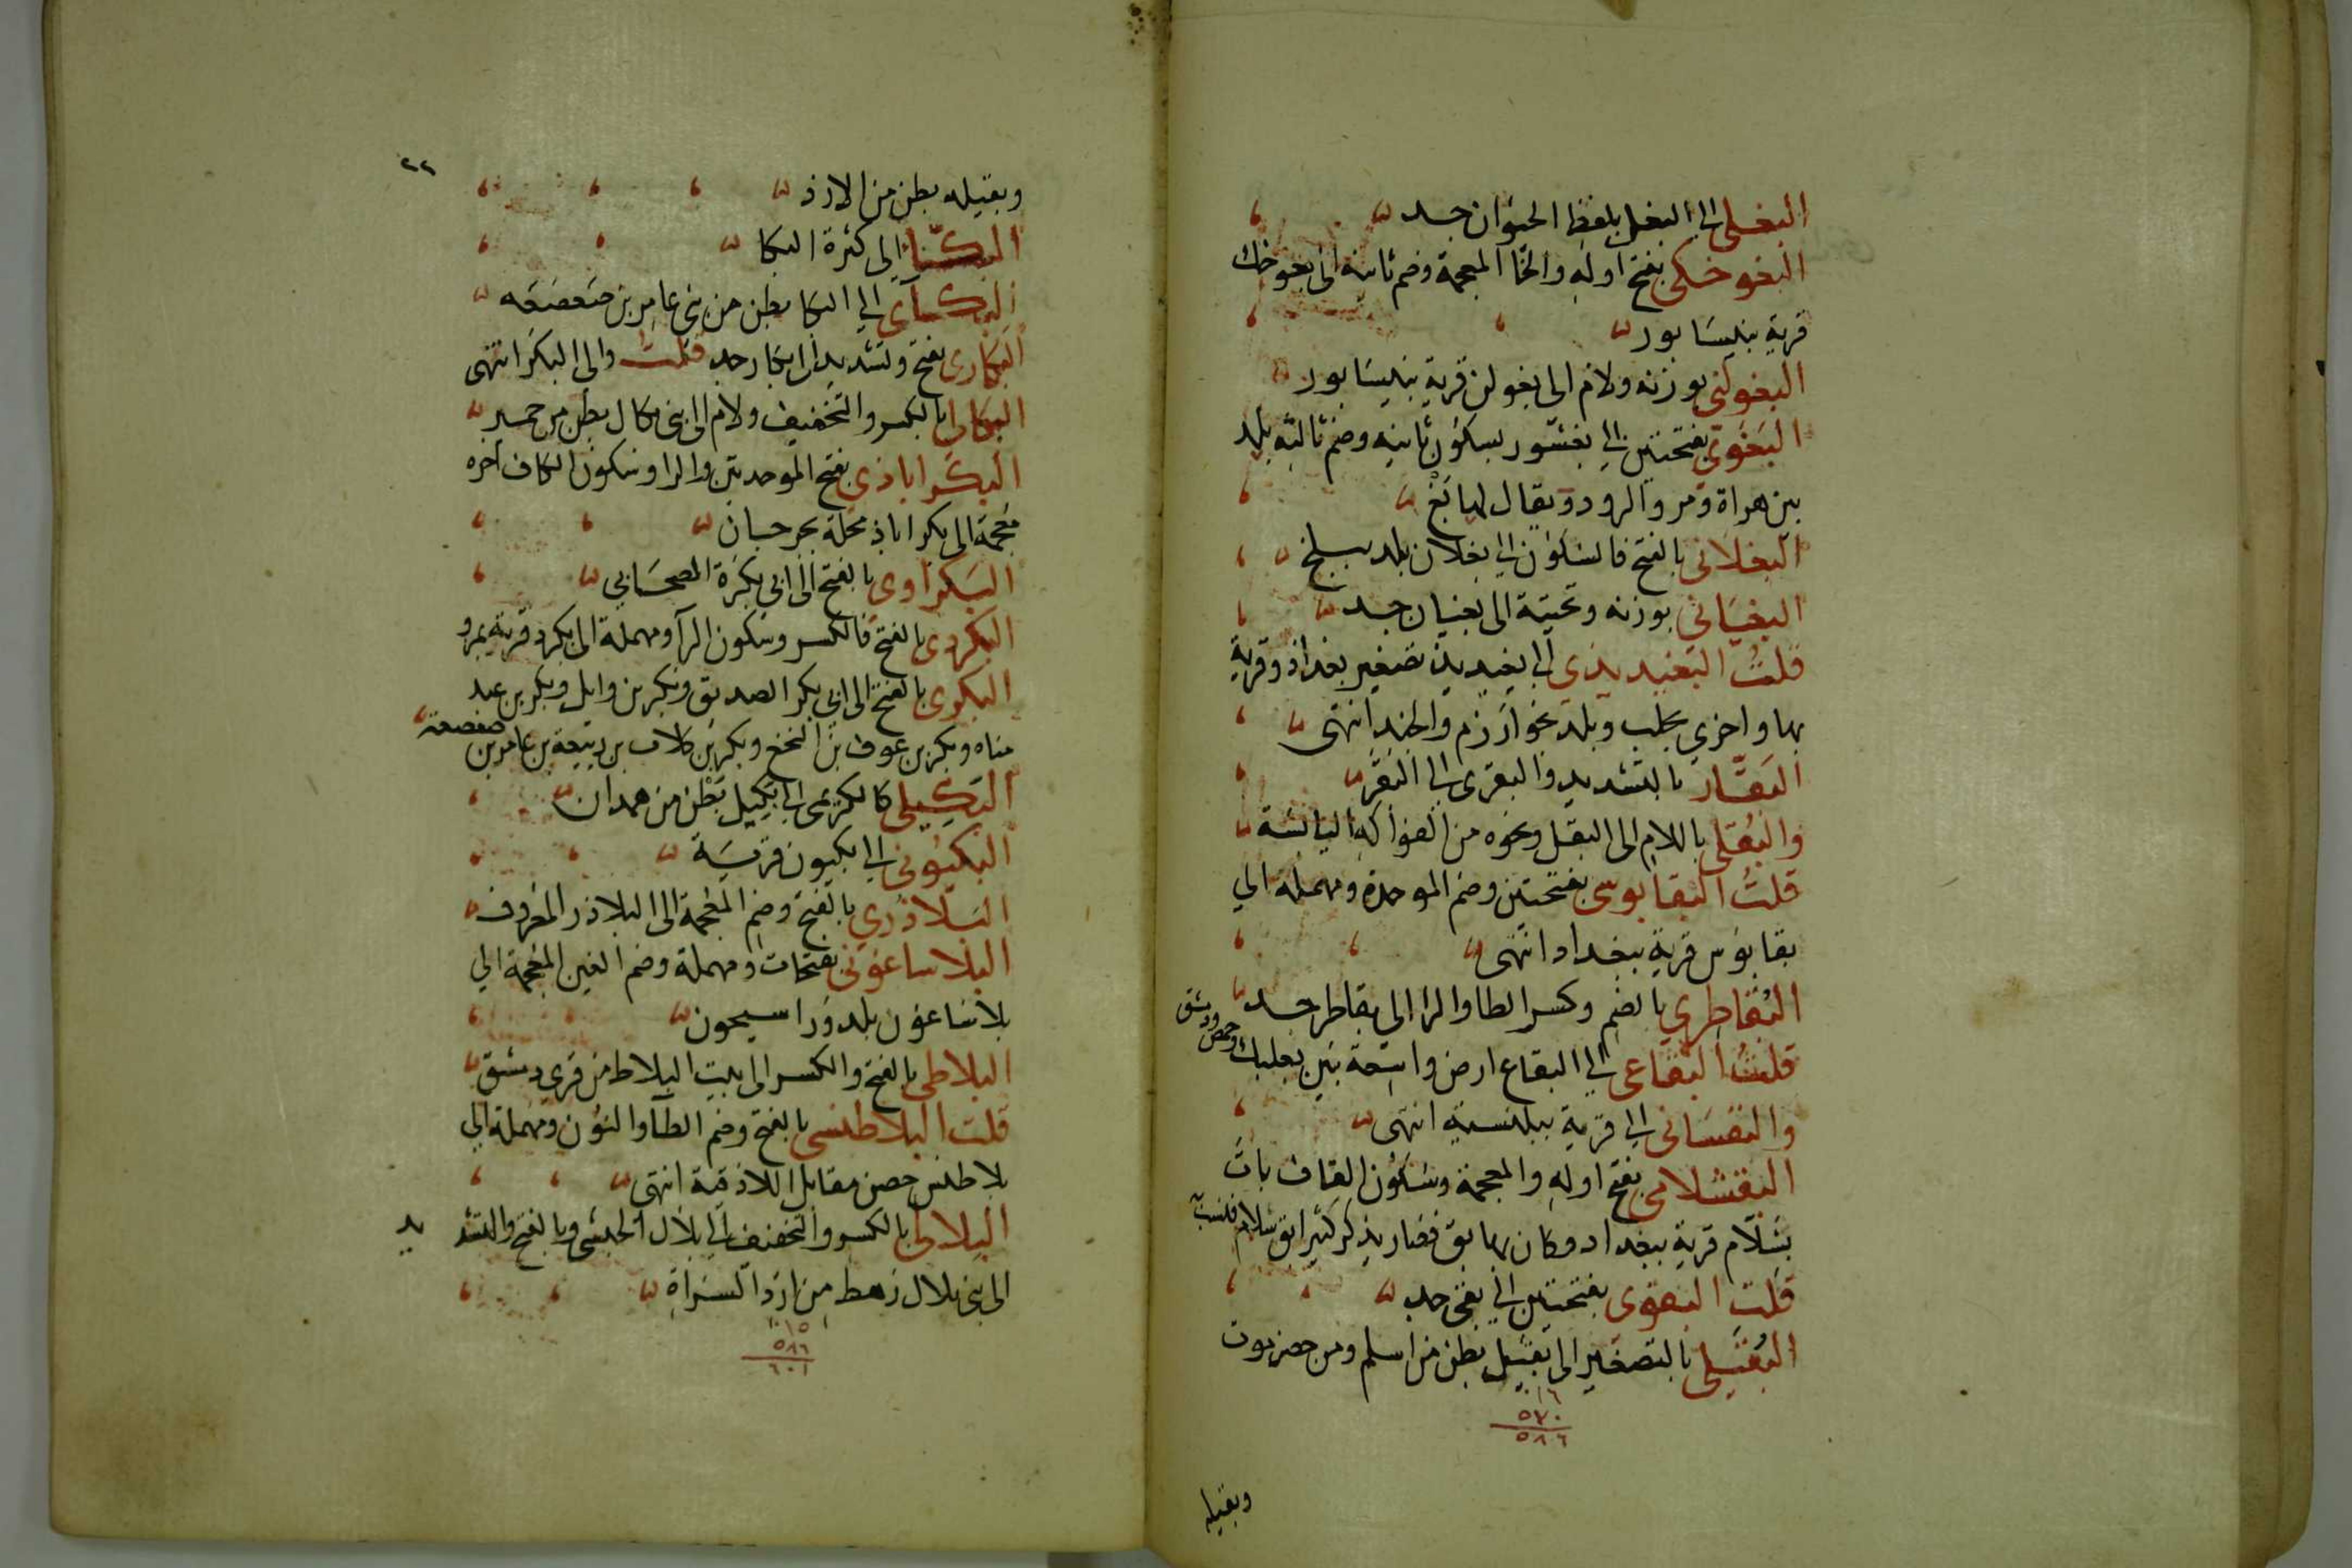 البغلي الى البغل بلفظ الحيوان جد
البغوخكي بفتح اوله والخا المعجمة وضم ثانيه الى بغوخك
قرية بنيسابور
البغولني بوزنه ولام الى بغولن قرية بنيسابور
البغوي بفتحتين الى بغشور بسكون ثانيه وضم ثالثه بلد
بين هراة ومرو الرود ويقال لها بغ
البغلاني بالفتح فالسكون الى بغلان بلد ببلخ
البغياني بوزنه وتحتية الى بغيان جد
قلت البغيديدي الى بغيديد تصغير بغداد وقرية
بها واخري بحلب وبلد بخوارزم والجند انتهى
البقار بالتشديد والبقري الى البقر
والبقلي باللام الى البقل ونحوه من الفواكه اليابسة
قلت البقابوسي بفتحتين وضم الموحدة ومهملة الي
بقابوس قرية ببغداد انتهى
البقاطري بالضم وكسر الطا والرا الي بقاطر جد
قلت البقاعي الي البقاع ارض واسعة بين بعلبك وحمص ودمشق
والبقساني الى قرية ببلنسية انتهى
البقشلامي بفتح اوله والمعجمة وسكون القاف بات
بشلام قرية ببغداد وكان بها بق فصار يذكر كثيرا بق شلام فنسب
قلت البقوي بفتحتين الي بقي جد
البقيلي بالتصغير الى بقيل بطن من اسلم ومن حضرموت
١٦
٥٧٠
٥٨٦
وبقيله
٢٢
وبقيله بطن من الازد
البكا الى كثرة البكا
البكائي الي البكا بطن من بني عامر بن صعصعه
البكاري بفتح وتشديد الى بكار جد قلت والى البكر انتهى
البكالي بالكسر والتخفيف ولام الى بني بكال بطن من حمير
البكراباذي بفتح الموحدتين والرا وسكون الكاف اخره
معجمة الى بكراباذ محلة بجرجان
البكراوي بالفتح الى ابي بكرة الصحابي
البكردي بالفتح فالكسر وسكون الرآ ومهملة الى بكرد قرية بمرو
البكري بالفتح الى ابي بكر الصديق وبكر بن وايل وبكر بن عبد
مناه وبكر بن عوف بن النخع وبكر بن كلاب بن ربيعة بن عامر بن صعصعة
البكيلي كالبكردي الى بكيل بطن من همدان
البكيوني الي بكيون قرية
البلاذري بالفتح وضم المعجمة الى البلاذر المعروف
البلاساغوني بفتحات ومهملة وضم الغين المعجمة الي
بلاساغون بلد ورا سيحون
البلاطي بالفتح والكسر الى بيت البلاط من قري دمشق
قلت البلاطنسي بالفتح وضم الطآ والنون ومهملة الي
بلاطنس حصن مقابل اللاذقية انتهى
البلالي بالكسر والتخفيف الى بلال الحبشي وبالفتح والتشد يد
الى بني بلال رهط من ازد السراة
١٥
٥٨٦
٦٠١